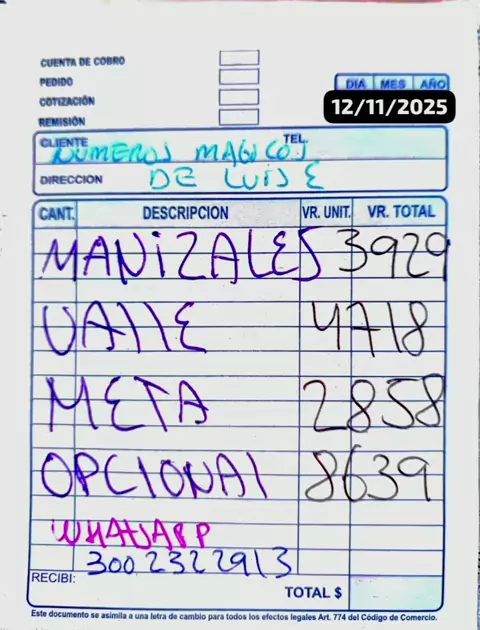 CUENTA DE COBRO
PEDIDO
COTIZACIÓN
REMISIÓN
DIA MES AÑO
12/11/2025
CLIENTE TEL.
NUMEROS MAGICOS
DIRECCION DE LUIS E
CANT. DESCRIPCION VR. UNIT. VR. TOTAL
MANIZALES 3929
VALLE 4718
META 2858
OPCIONAL 8639
WHATSAPP
3002322913
RECIBI:
TOTAL $
Este documento se asimila a una letra de cambio para todos los efectos legales Art. 774 del Código de Comercio.